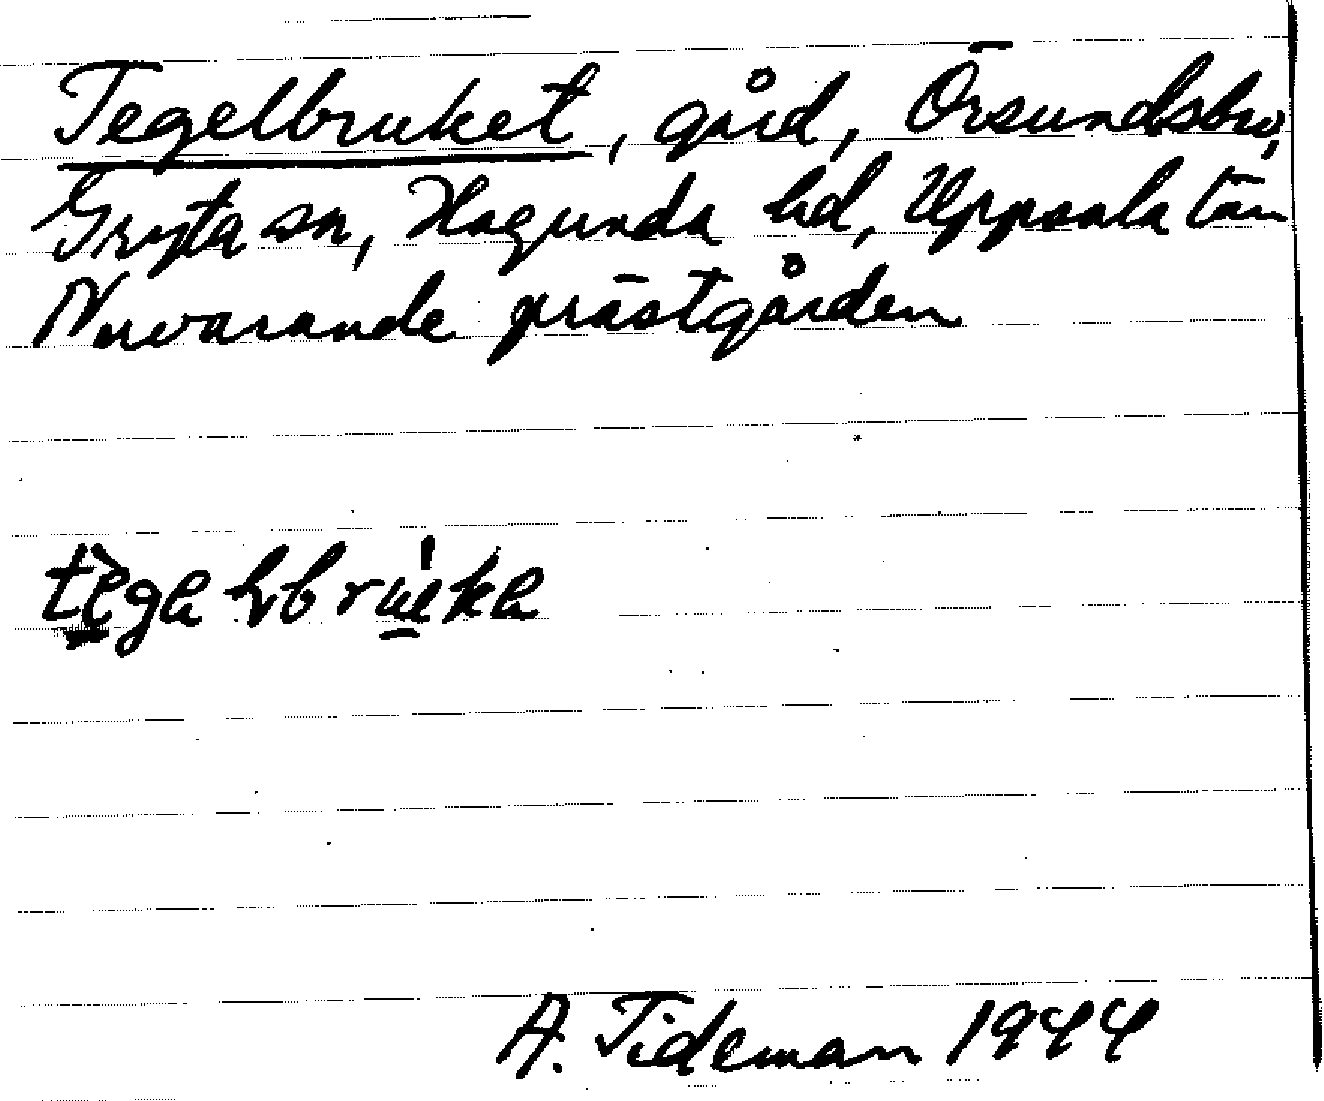 Tegelbruket, gård, Örsundsbro,
Gryta sn, Hagunda hd, Uppsala län
Nuvarande prästgården
A. Tideman 1944